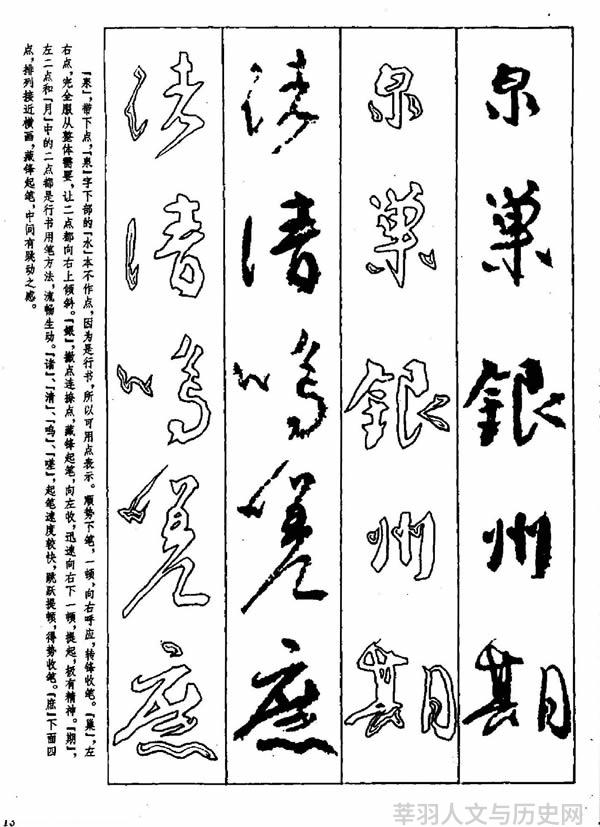 泉巢銀州期
泉巢銀州期
诸清鸣嗟庶
诸清鸣嗟庶
「泉」,带下点,「泉」字下部的「水」本不作点,因为是行书,所以可用点表示。顺势下笔,一顿,向右呼应,转锋收笔。「巢」,左
右点,完全服从整体需要,让二点都向右上倾斜。「銀」,撇点连捺点,藏锋起笔,向左收,迅速向右下一顿,提起,极有精神。「期」,
左二点和「月」中的二点都是行书用笔方法,流畅生动。「诸」、「清」、「鸣」、「嗟」,起笔速度较快,跳跃提顿,得势收笔。「庶」下面四
点,排列接近横画,藏锋起笔,中间有跳动之感。
莘羽人文与历史网